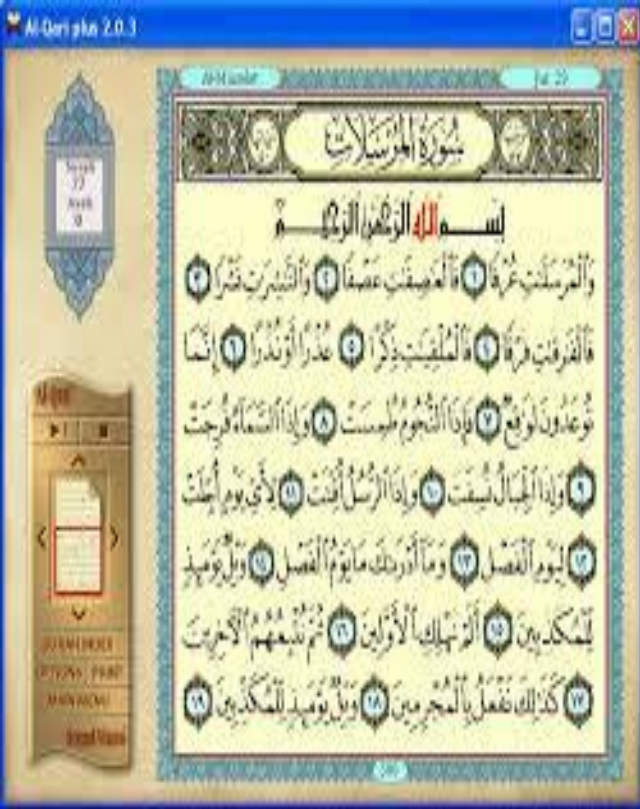 Al-Qari plus 2.0.3
Juz 29
سورة المرسلات
بسم الله الرحمن الرحيم
والمرسلت عرفا ١ فالعصفت عصفا ٢ والنشرت نشرا ٣
فالفرقت فرقا ٤ فالملقيت ذكرا ٥ عذرا أو نذرا ٦ إنما
توعدون لوقع ٧ فإذا النجوم طمست ٨ وإذا السماء فرجت
٩ وإذا الجبال نسفت ١٠ وإذا الرسل أقتت ١١ لأي يوم أجلت
١٢ ليوم الفصل ١٣ وما أدرىك ما يوم الفصل ١٤ ويل يومئذ
للمكذبين ١٥ ألم نهلك الأولين ١٦ ثم نتبعهم الآخرين
١٧ كذلك نفعل بالمجرمين ١٨ ويل يومئذ للمكذبين ١٩
Surah
77
Ayah
0
Al-Qari
MAIN MENU